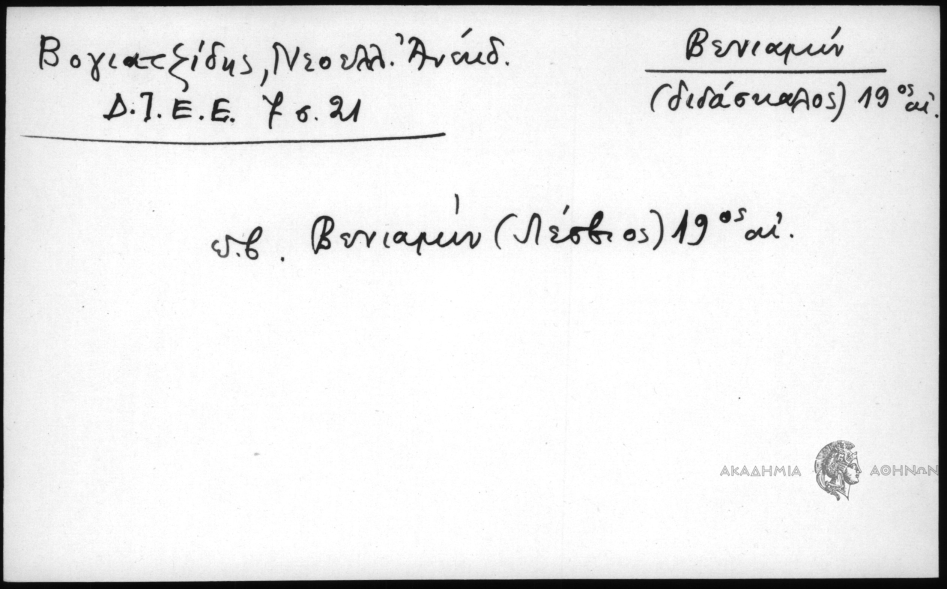 Βογιατζίδης, Νεοελλ. Ἀνέκδ.
Δ.Ι.Ε.Ε. 7 σ. 21
Βενιαμίν
(διδάσκαλος) 19ος αἰ.
Βενιαμίν (Λέσβιος) 19ος αἰ.
ΑΚΑΔΗΜΙΑ ΑΘΗΝΩΝ